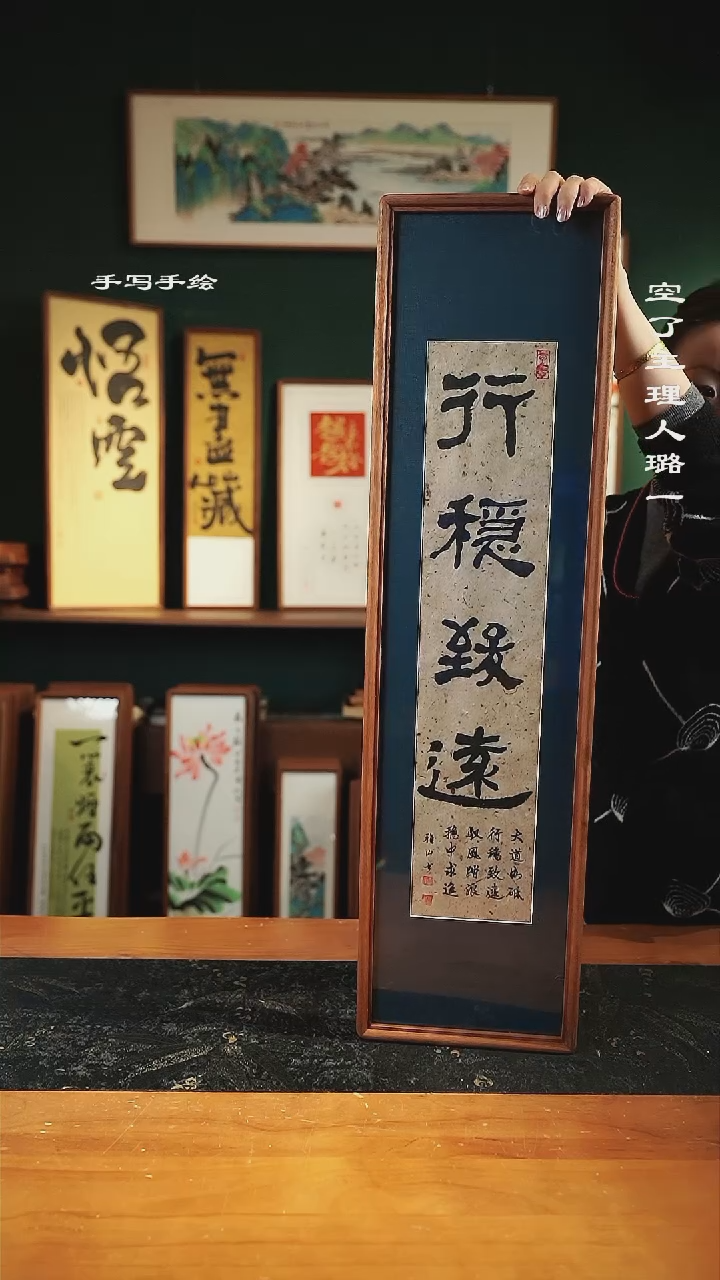 手写手绘
空了主理人璐一
悟空
無盡藏
行穩致遠
大道如砥
行穩致遠
馭風踏浪
穩中求進
一蓑烟雨任平